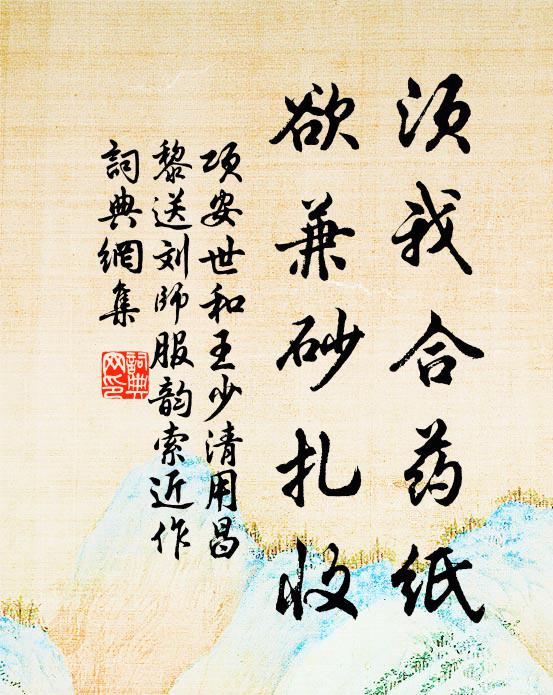 须我合药纸
欲兼砂扎收
项安世和王少清用昌
黎送刘师服韵索近作
詞典網集
詞典網印